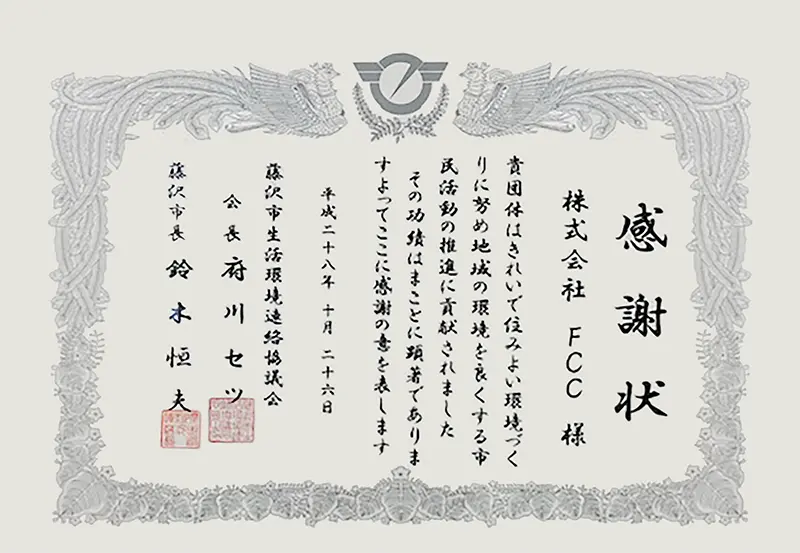 感謝状
株式会社 FCC 様
貴団体はきれいで住みよい環境づく
りに努め地域の環境を良くする市
民活動の推進に貢献されました
その功績はまことに顕著でありま
すよってここに感謝の意を表します
平成二十八年 十月 二十六日
藤沢市生活環境連絡協議会
会長 府川セツ
藤沢市長 鈴木恒夫